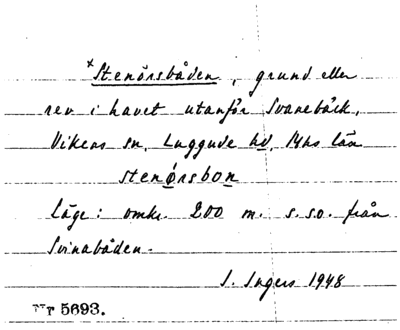 *Stenörsbåden, grund eller
rev i havet utanför Svanebäck,
Vikens sn, Luggude hd, Mhs län
stenørsbon
Läge: omkr. 200 m. s.so. från
Svinabåden.
I. Ingers 1948
Nr 5693.